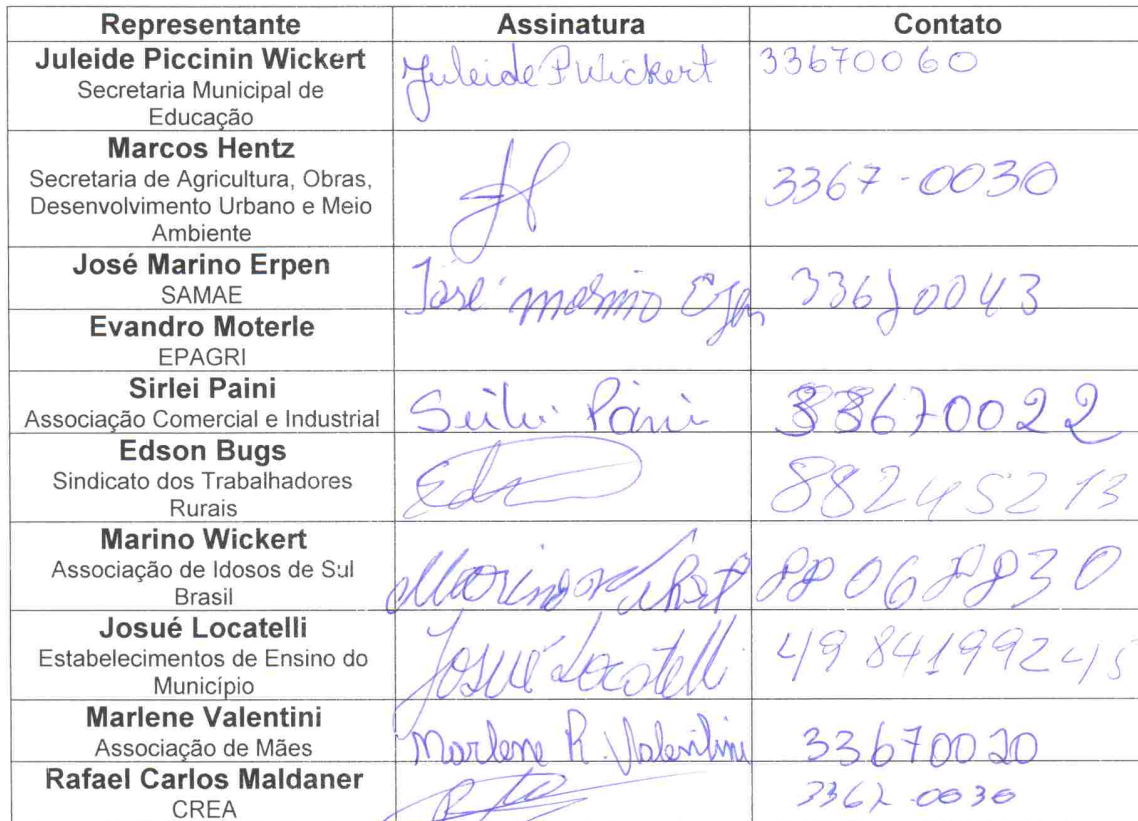 Representante Assinatura Contato
Juleide Piccinin Wickert
Secretaria Municipal de
Educação
Juleide P Wickert 33670060
Marcos Hentz
Secretaria de Agricultura, Obras,
Desenvolvimento Urbano e Meio
Ambiente
3367-0030
José Marino Erpen
SAMAE
José marino 33670043
Evandro Moterle
EPAGRI
Sirlei Paini
Associação Comercial e Industrial
Sirlei Paini 33670022
Edson Bugs
Sindicato dos Trabalhadores
Rurais
88245213
Marino Wickert
Associação de Idosos de Sul
Brasil
Marino Wickert 88068830
Josué Locatelli
Estabelecimentos de Ensino do
Município
Josué Locatelli 49 84199245
Marlene Valentini
Associação de Mães
Marlene R. Valentini 33670020
Rafael Carlos Maldaner
CREA
3367-0030